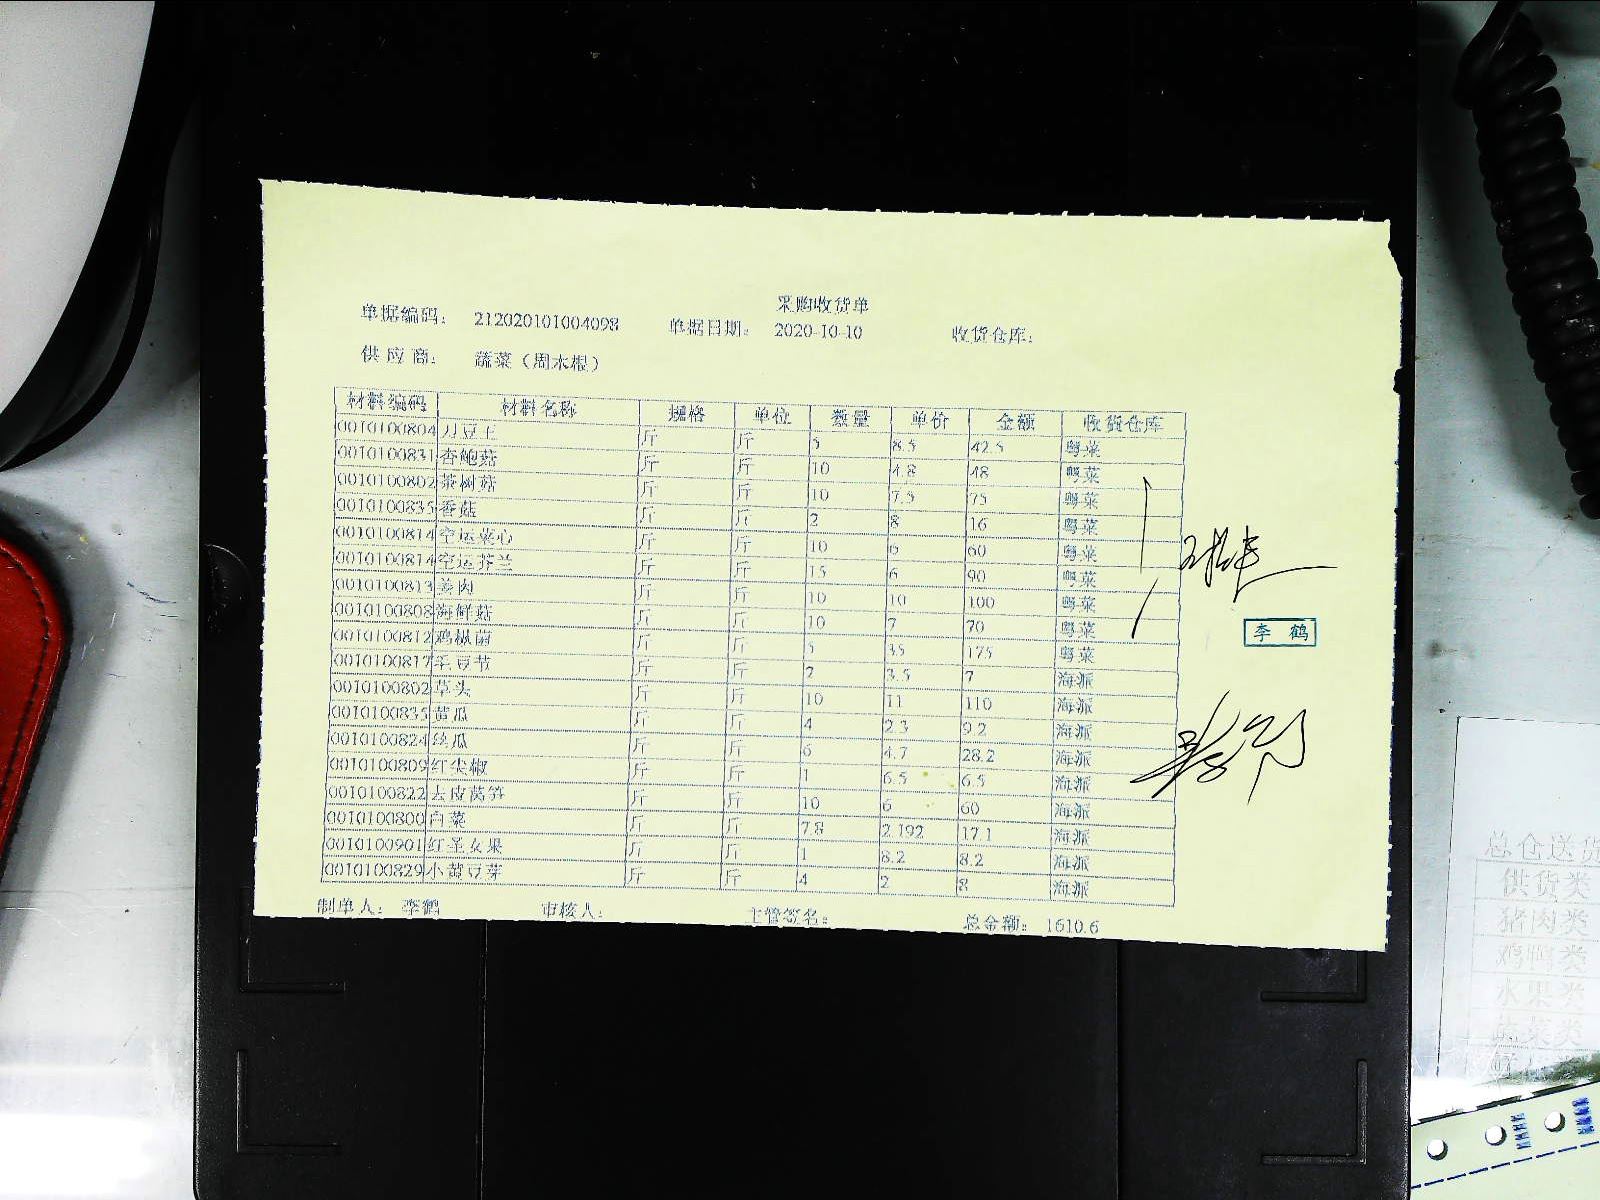 采购收货单
单据编码： 212020101004098 单据日期： 2020-10-10 收货仓库：
供 应 商： 蔬菜（周木根）
材料编码 材料名称 规格 单位 数量 单价 金额 收货仓库
0010100804 刀豆王 斤 斤 5 8.5 42.5 粤菜
0010100831 杏鲍菇 斤 斤 10 4.8 48 粤菜
0010100802 茶树菇 斤 斤 10 7.5 75 粤菜
0010100835 香菇 斤 斤 2 8 16 粤菜
0010100814 空运菜心 斤 斤 10 6 60 粤菜
0010100814 空运芥兰 斤 斤 15 6 90 粤菜
0010100813 姜肉 斤 斤 10 10 100 粤菜
0010100808 海鲜菇 斤 斤 10 7 70 粤菜
0010100812 鸡枞菌 斤 斤 5 35 175 粤菜
0010100817 毛豆节 斤 斤 2 3.5 7 海派
0010100802 草头 斤 斤 10 11 110 海派
0010100835 黄瓜 斤 斤 4 2.3 9.2 海派
0010100824 丝瓜 斤 斤 6 4.7 28.2 海派
0010100809 红尖椒 斤 斤 1 6.5 6.5 海派
0010100822 去皮莴笋 斤 斤 10 6 60 海派
0010100800 白菜 斤 斤 7.8 2.192 17.1 海派
0010100901 红圣女果 斤 斤 1 8.2 8.2 海派
0010100829 小黄豆芽 斤 斤 4 2 8 海派
制单人： 李鹤 审核人： 主管签名： 总金额： 1610.6
李 鹤
总仓送货
供货类
猪肉类
鸡鸭类
水果类
蔬菜类